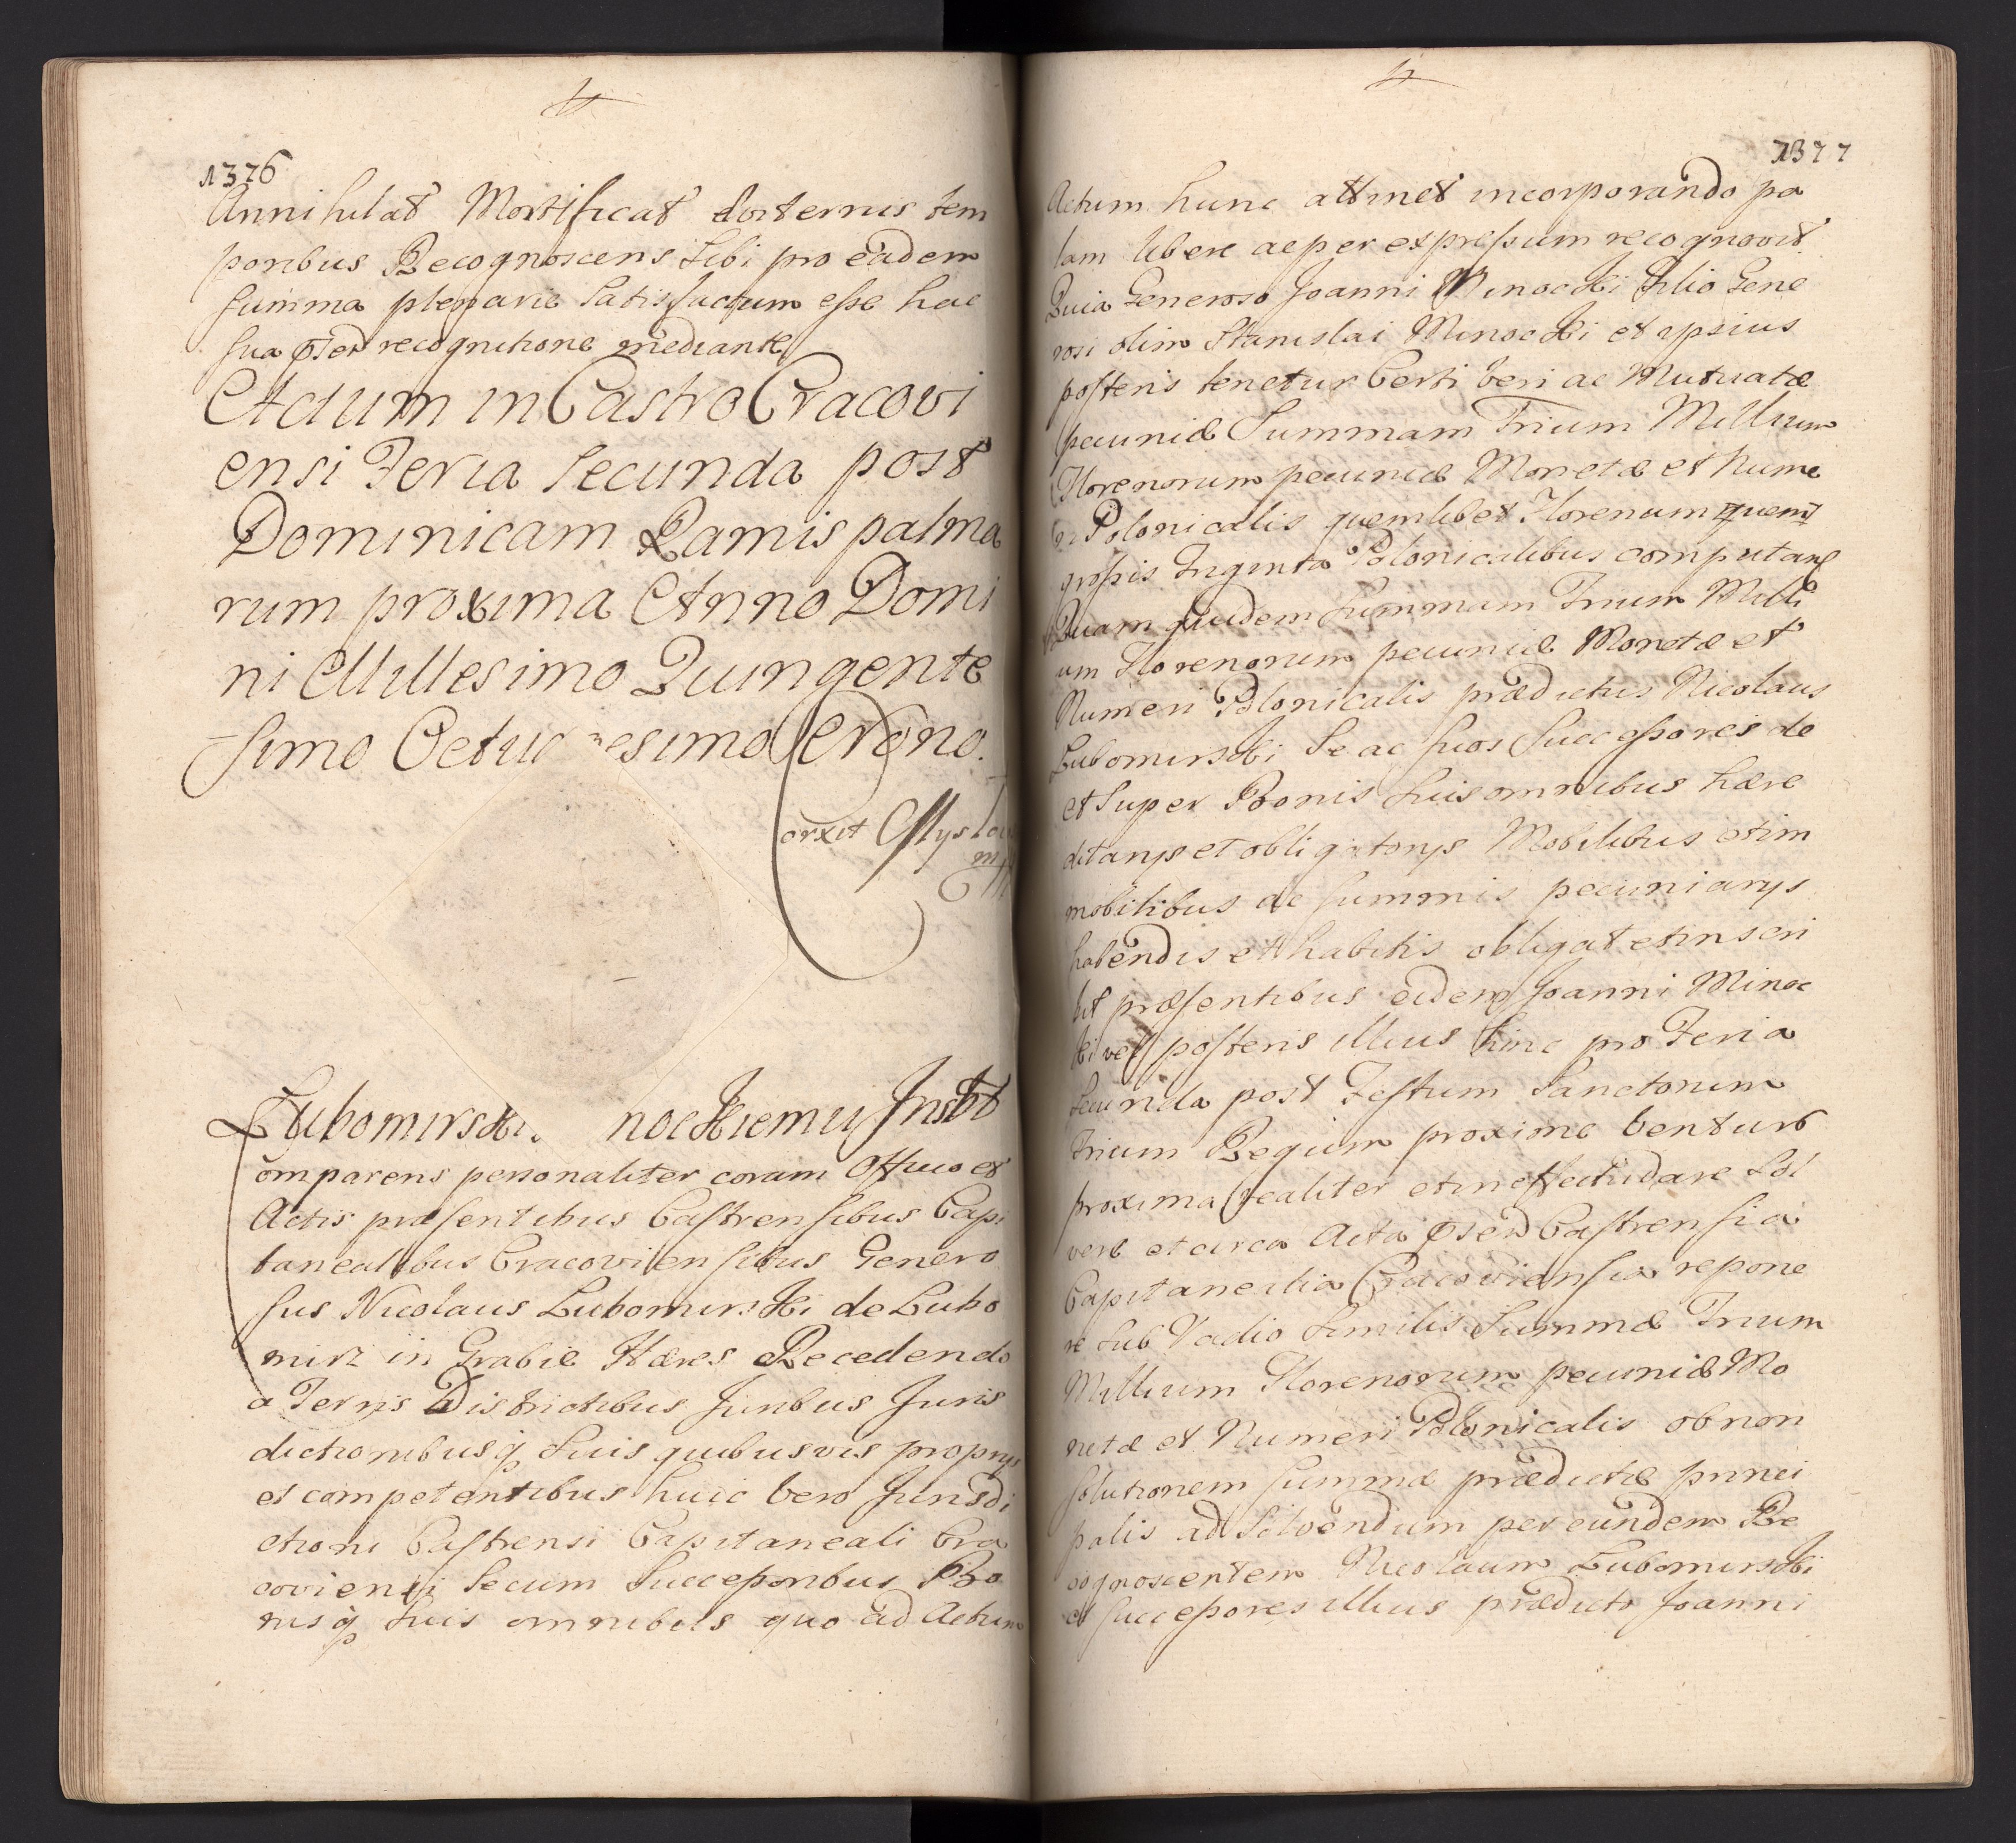 1376
Annihilat Mortificat Æviternis tem
poribus Recognoscens Sibi pro eadem
summa plenarie Satisfactum esse hac
sua recognitione mediante
Actum in Castro Cracovi
ensi Feria Secunda post
Dominicam Ramis palma
rum proxima Anno Domi
ni Millesimo Quingente
simo Octua esimo Nono.
Lubomirski nockiemu Inscbt
omparens personaliter coram Officio et
Actis præsentibus Castrensibus Capi
taneatibus Cracoviensibus Genero
sus Nicolaus Lubomirski de Lubo
mirz in Grabie Hæres Recedendo
a Terris Districtibus Juribus Juris
dictionibusq Suis quibusvis proprijs
et competentibus huic vero Jurisdi
ctioni Castrensi Capitaneali Cra
coviensi Secum Successoribus Bo
nisq Suis omnibus quo ad Actum
1377
Actum hunc attinet incorporando pa
lam libere ac per expressum recognovit
Quia Generoso Joanni Minocki Filio Gene
rosi olim Stanislai Minocki et ipsius
posteris tenetur Certi veri ac Mutuatæ
pecuniæ Summam Trium Millium
Florenorum pecuniæ Monetæ et Nume
ri Polonicalis quemlibet Florenum quem
grossis Triginta Polonicalibus computan
Quam quidem Summam Trium Milli
um Florenorum pecuniæ Monetæ et
Numeri Polonicalis prædictus Nicolaus
Lubomirski Se ac suos Successores de
et Super Bonis Suis omnibus hære
ditarijs et obligatorijs Mobilibus et im
mobilibus ac summis pecuniarijs
habendis et habitis obligat et inscri
bit præsentibus eidem Joanni Minoc
ki vel posteris illius hinc pro Feria
Secunda post Festum Sanctorum
Trium Regum proxime ventur
proxima realiter et in effectu dare Sol
vere et circa Acta Castrensia
Capitanealia Cracoviensia repone
re sub Vadio Similis Summæ Trium
Millium Florenorum pecuniæ Mo
netæ et Numeri Polonicalis ob non
solutionem summæ prædictæ princi
palis ad Solvendum per eundem Re
cognoscentem Nicolaum Lubomirski
et successores illius prædicto Joanni